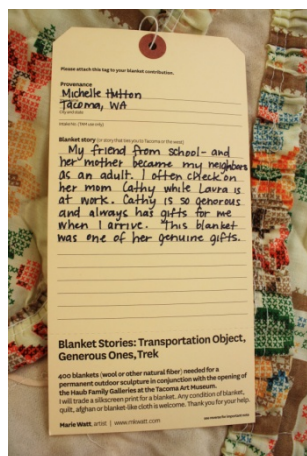 Please attach this tag to your blanket contribution.
Provenance
Michelle Hutton
Tacoma, WA
City and state
Blanket story (or story that ties you to Tacoma or the west)
My friend from school- and
her mother became my neighbors
as an adult. I often check on
her mom Cathy while Laura is
at work. Cathy is so generous
and always has gifts for me
when I arrive. This blanket
was one of her genuine gifts.
Blanket Stories: Transportation Object,
Generous Ones, Trek
400 blankets (wool or other natural fiber) needed for a
permanent outdoor sculpture in conjunction with the opening of
the Haub Family Galleries at the Tacoma Art Museum.
I will trade a silkscreen print for a blanket. Any condition of blanket,
quilt, afghan or blanket-like cloth is welcome. Thank you for your help.
Marie Watt, artist | www.mkwatt.com
see reverse for important info